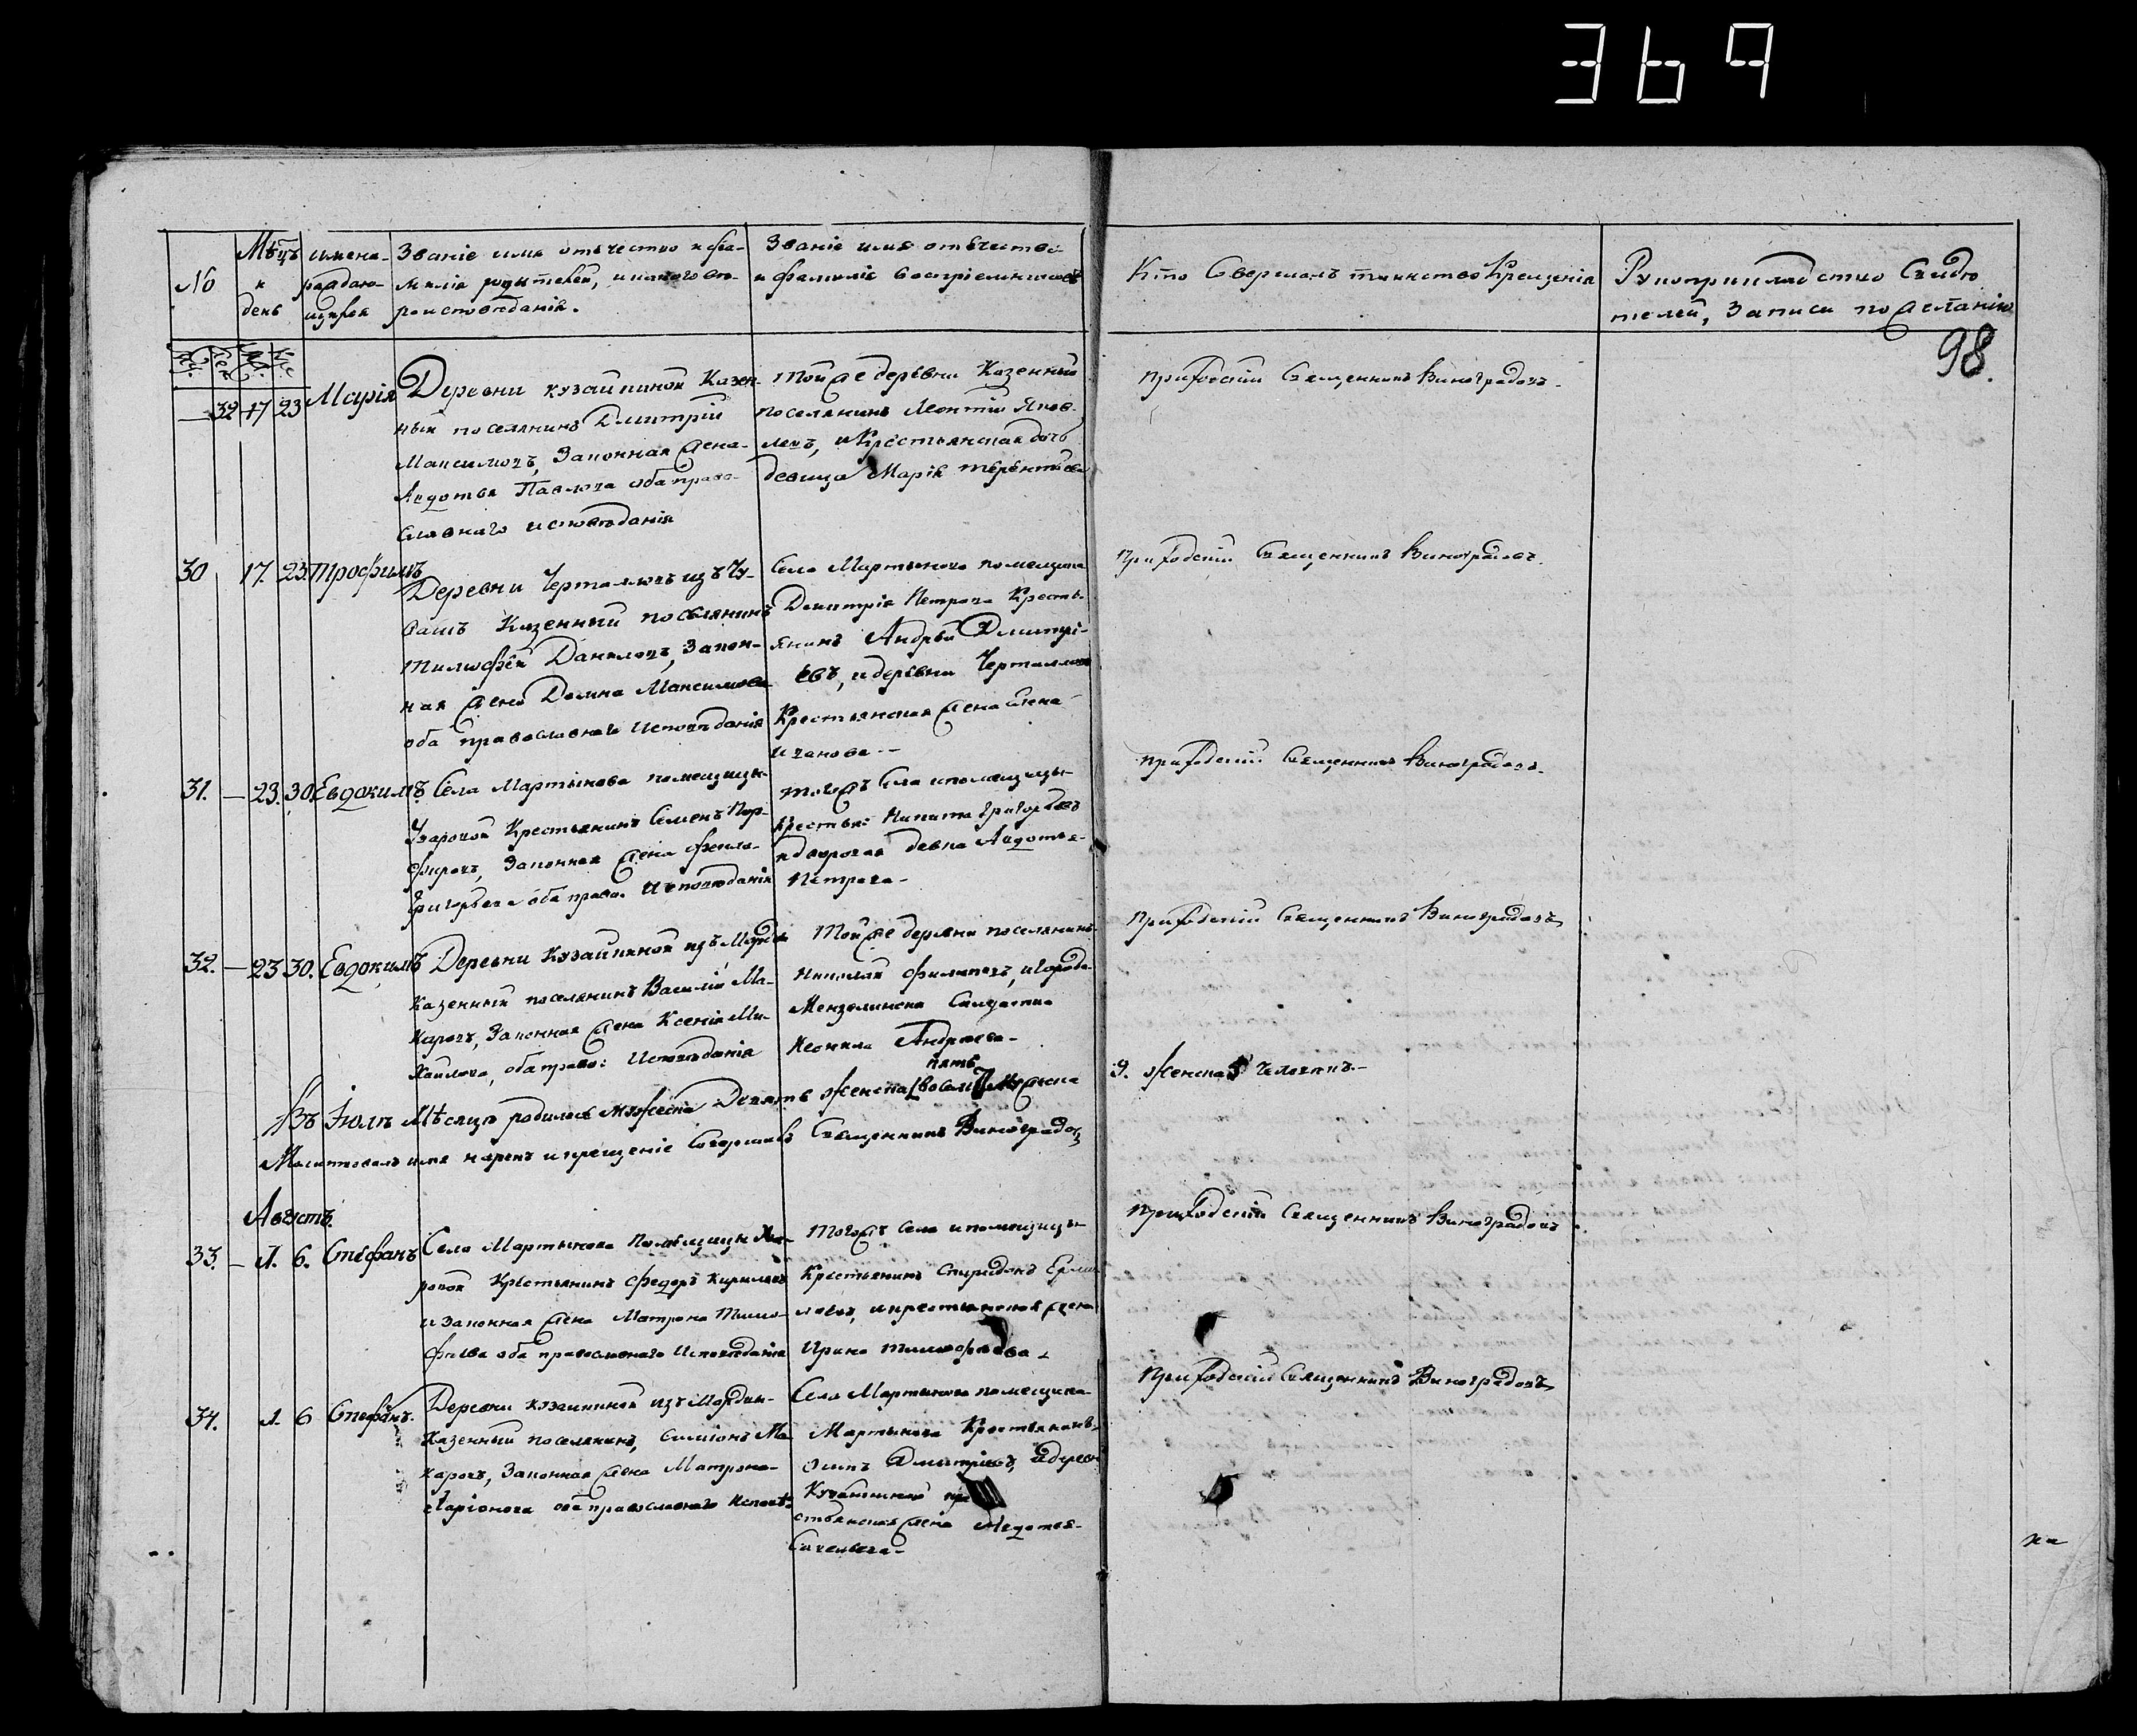 369
№
Мѣцъ и день
имена раждающихся
Званіе имя отечество и фамилія родителей, и какого вѣроисповѣданія.
Званіе имя отечество и фамиліе воспріемниковъ
Кто Совершалъ таинство Крещенія
Рукоприкладство Свидѣтелей, Записи по желанію
98.
— 32 17 23 Марія
Деревни Кузайкиной Казенный поселянинъ Димитрій
Максимовъ, Законная жена
Авдотья Павлова оба православнаго исповѣданія
Той же деревни Казенный
поселянинъ Леонтій Яковлевъ, и Крестьянская дочь
девица Марія Терентьева
приходскій Священникъ Виноградовъ
30 17. 23. Трофимъ
Деревни изъ Чувашъ Казенный поселянинъ
Тимофей Даниловъ, Законная жена Домна Максимова
оба православнаго Исповѣданія
Села Мартынова помещика
Димитрія Петрова Крестьянинъ Андрей Дмитріевъ, и деревни
Крестьянская жена
приходскій Священникъ Виноградовъ.
31. — 23. 30. Евдокимъ
Села Мартынова помещицы
Крестьянинъ Семенъ
Законная жена
Григорьева оба право. Исповѣданія
тогожъ Села и помещицы
Крестья: Никита Григорьевъ
и дворовая девка Авдотья
Петрова
приходскій Священникъ Виноградовъ.
32. — 23 30. Евдокимъ
Деревни Кузайкиной изъ Мордвы
Казенный поселянинъ Василій Макаровъ, Законная жена Ксенія Михайлова, оба право: Исповѣданія
Той же деревни поселянинъ
Николай Филиповъ, и города
Мензелинска Салдатка
Неонила Андреева
приходскій Священникъ Виноградовъ
Въ Іюлѣ Мѣсяцѣ родилось мужеска Девять женска пять
9. женска 5 человѣкъ.
Молитвовалъ имя нарекъ и крещеніе Совершалъ Священникъ Виноградовъ
Августъ.
33. — 1. 6. Стефанъ
Села Мартынова Помѣщицы
Крестьянинъ Федоръ Кириловъ
и законная жена Матрона Тимофеева оба православнаго Исповѣданія
Тогожъ села и помещицы
Крестьянинъ Спиридонъ
и крестьянская жена
Ирина Тимофеева
приходскій Священникъ Виноградовъ
34. 1. 6 Стефанъ.
Деревни Кузайкиной изъ Мордвы
Казенный поселянинъ, Симіонъ Макаровъ, Законная жена Матрона
Ларіонова оба православнаго Исповѣ:
Села Мартынова помещика
Мартынова Крестьянинъ
Осипъ Дмитріевъ, и дерев
Кузайкиной
жена Авдотья
приходскій Священникъ Виноградовъ